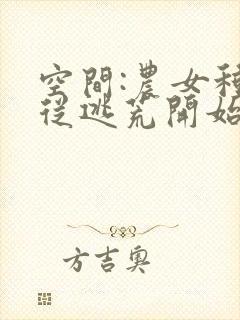 空間:農女種
從逃荒開始
方吉奥